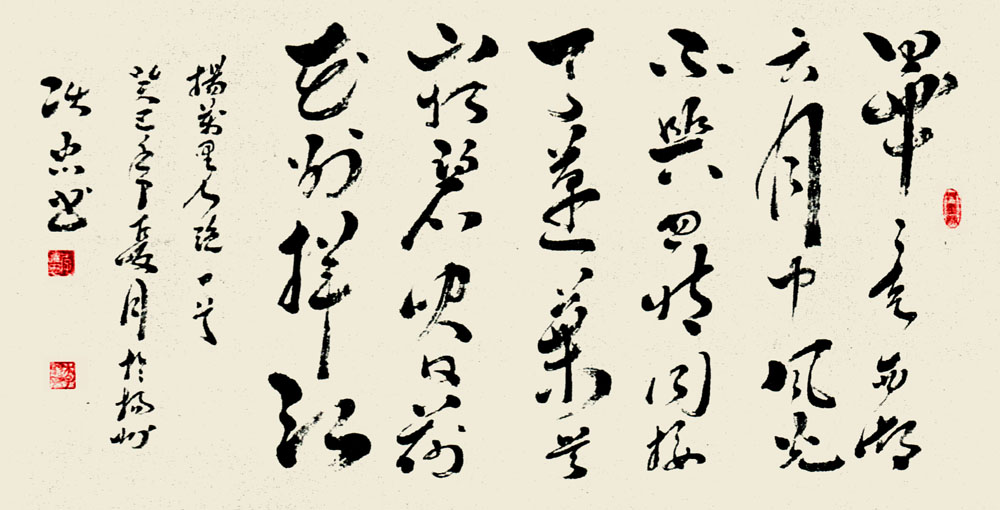 畢竟西湖
六月中風光
不與四時同接
天蓮葉無
窮碧映日荷
花別样紅
楊萬里七絕一首
癸巳年夏月於揚州
忠書